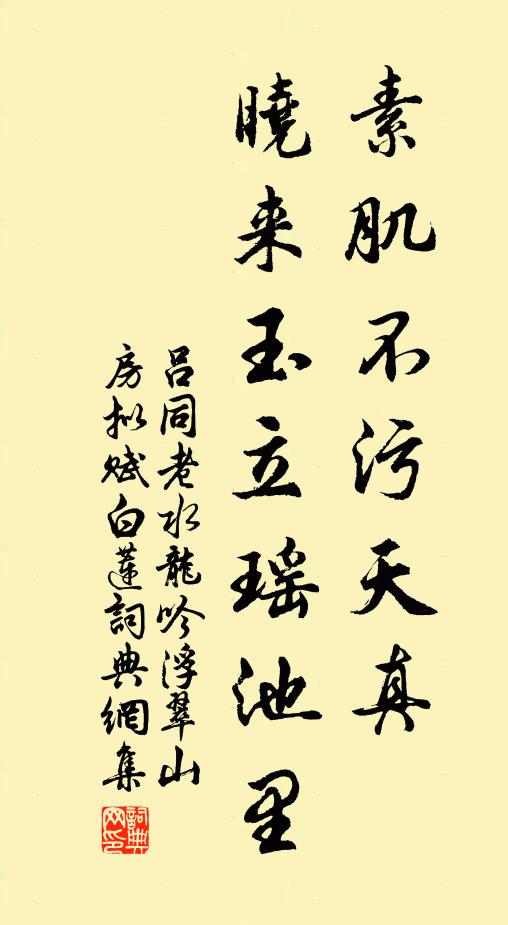 素肌不污天真
曉来玉立瑶池里
吕同老水龍吟浮翠山
房拟赋白蓮詞典網集
詞典
网印